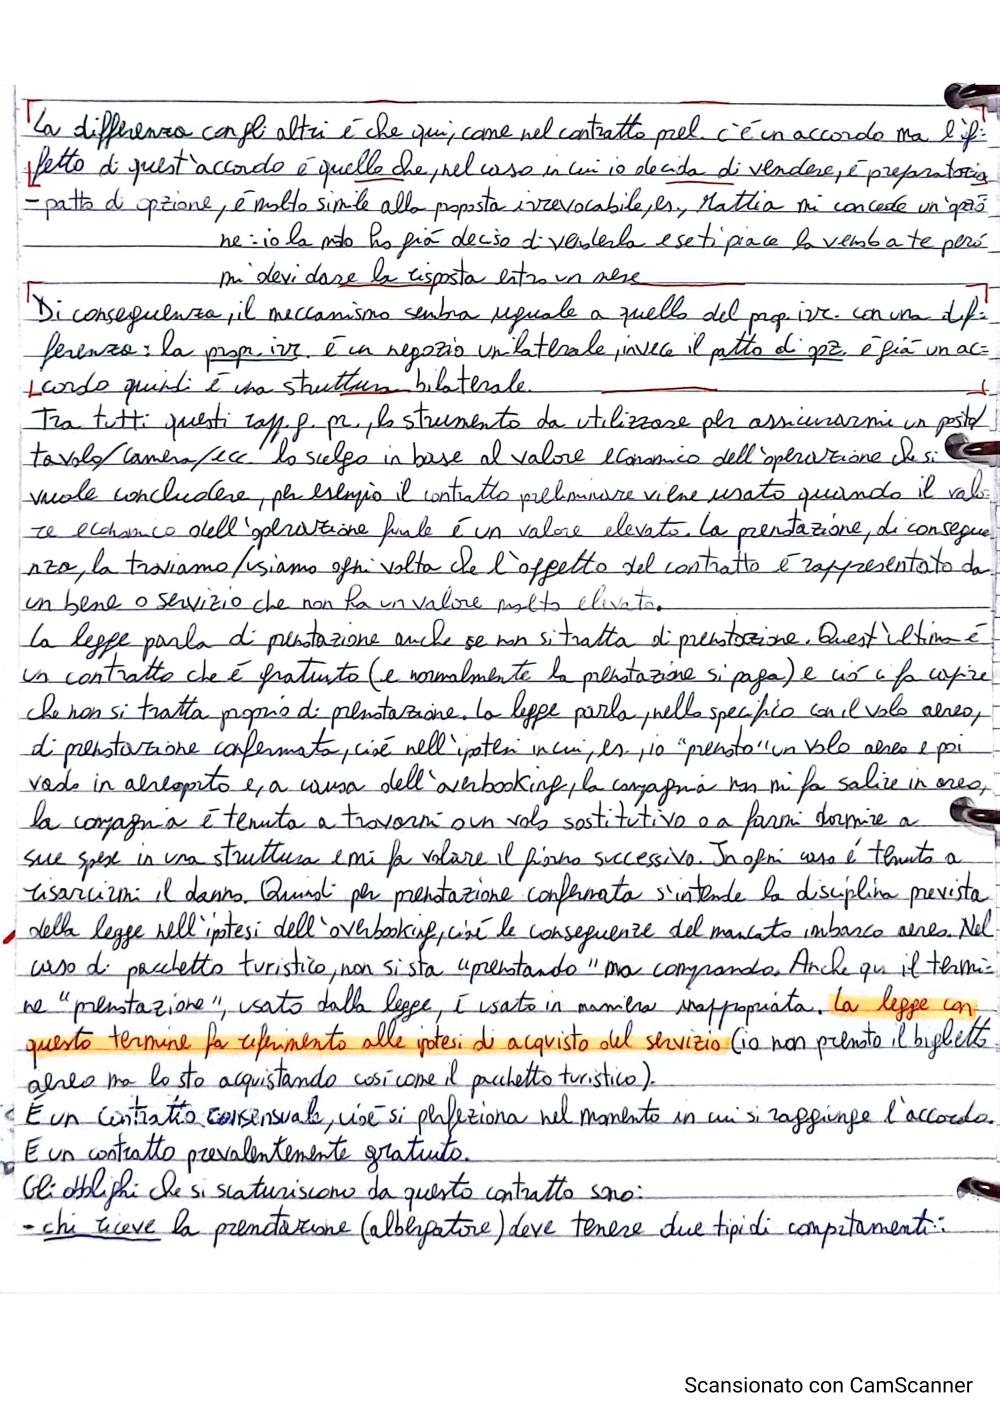 La differenza con gli altri è che qui, come nel contratto prel. c'è un accordo ma l'ef=
fetto di quest'accordo è quello che, nel caso in cui io decida di vendere, è preparatorio
- patto di opzione, è molto simile alla proposta irrevocabile, es., Mattia mi concede un'opzio
ne: io la moto ho già deciso di venderla e se ti piace la vendo a te però
mi devi dare la risposta entro un mese
Di conseguenza, il meccanismo sembra uguale a quello del prop. irr. con una dif=
ferenza: la prop. irr. è un negozio unilaterale, invece il patto di opz. è già un ac=
cordo quindi è una struttura bilaterale.
Tra tutti questi rapp. g. pr., lo strumento da utilizzare per assicurarmi un posto/
tavolo/camera/ecc lo scelgo in base al valore economico dell'operazione che si
vuole concludere, per esempio il contratto preliminare viene usato quando il valo-
re economico dell'operazione finale è un valore elevato. La prenotazione, di consegue
nza, la troviamo/usiamo ogni volta che l'oggetto del contratto è rappresentato da
un bene o servizio che non ha un valore molto elevato.
La legge parla di prenotazione anche se non si tratta di prenotazione. Quest'ultima è
un contratto che è gratuito (e normalmente la prenotazione si paga) e ciò ci fa capire
che non si tratta proprio di prenotazione. La legge parla, nello specifico con il volo aereo,
di prenotazione confermata, cioè nell'ipotesi in cui, es., io "prenoto" un volo aereo e poi
vado in aereoporto e, a causa dell'overbooking, la compagnia non mi fa salire in aereo,
la compagnia è tenuta a trovarmi o un volo sostitutivo o a farmi dormire a
sue spese in una struttura e mi fa volare il giorno successivo. In ogni caso è tenuto a
risarcirmi il danno. Quindi per prenotazione confermata s'intende la disciplina prevista
della legge nell'ipotesi dell'overbooking, cioè le conseguenze del mancato imbarco aereo. Nel
caso di pacchetto turistico, non si sta "prenotando" ma comprando. Anche qui il termi=
ne "prenotazione", usato dalla legge, è usato in maniera inappropriata. La legge con
questo termine fa riferimento alle ipotesi di acquisto del servizio (io non prenoto il biglietto
aereo ma lo sto acquistando così come il pacchetto turistico).
È un contratto consensuale, cioè si perfeziona nel momento in cui si raggiunge l'accordo.
È un contratto prevalentemente gratuito.
Gli obblighi che si scaturiscono da questo contratto sono:
- chi riceve la prenotazione (albergatore) deve tenere due tipi di comportamenti:
Scansionato con CamScanner